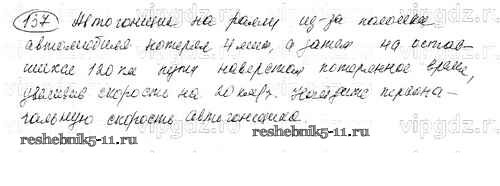 137 Автогонщик на ралли из-за поломки
автомобиля потерял 4 мин, а затем на остав-
шихся 120 км пути наверстал потерянное время,
увеличив скорость на 20 км/ч. Найдите первона-
чальную скорость автогонщика.
reshebnik5-11.ru
reshebnik5-11.ru
vipgdz.ru